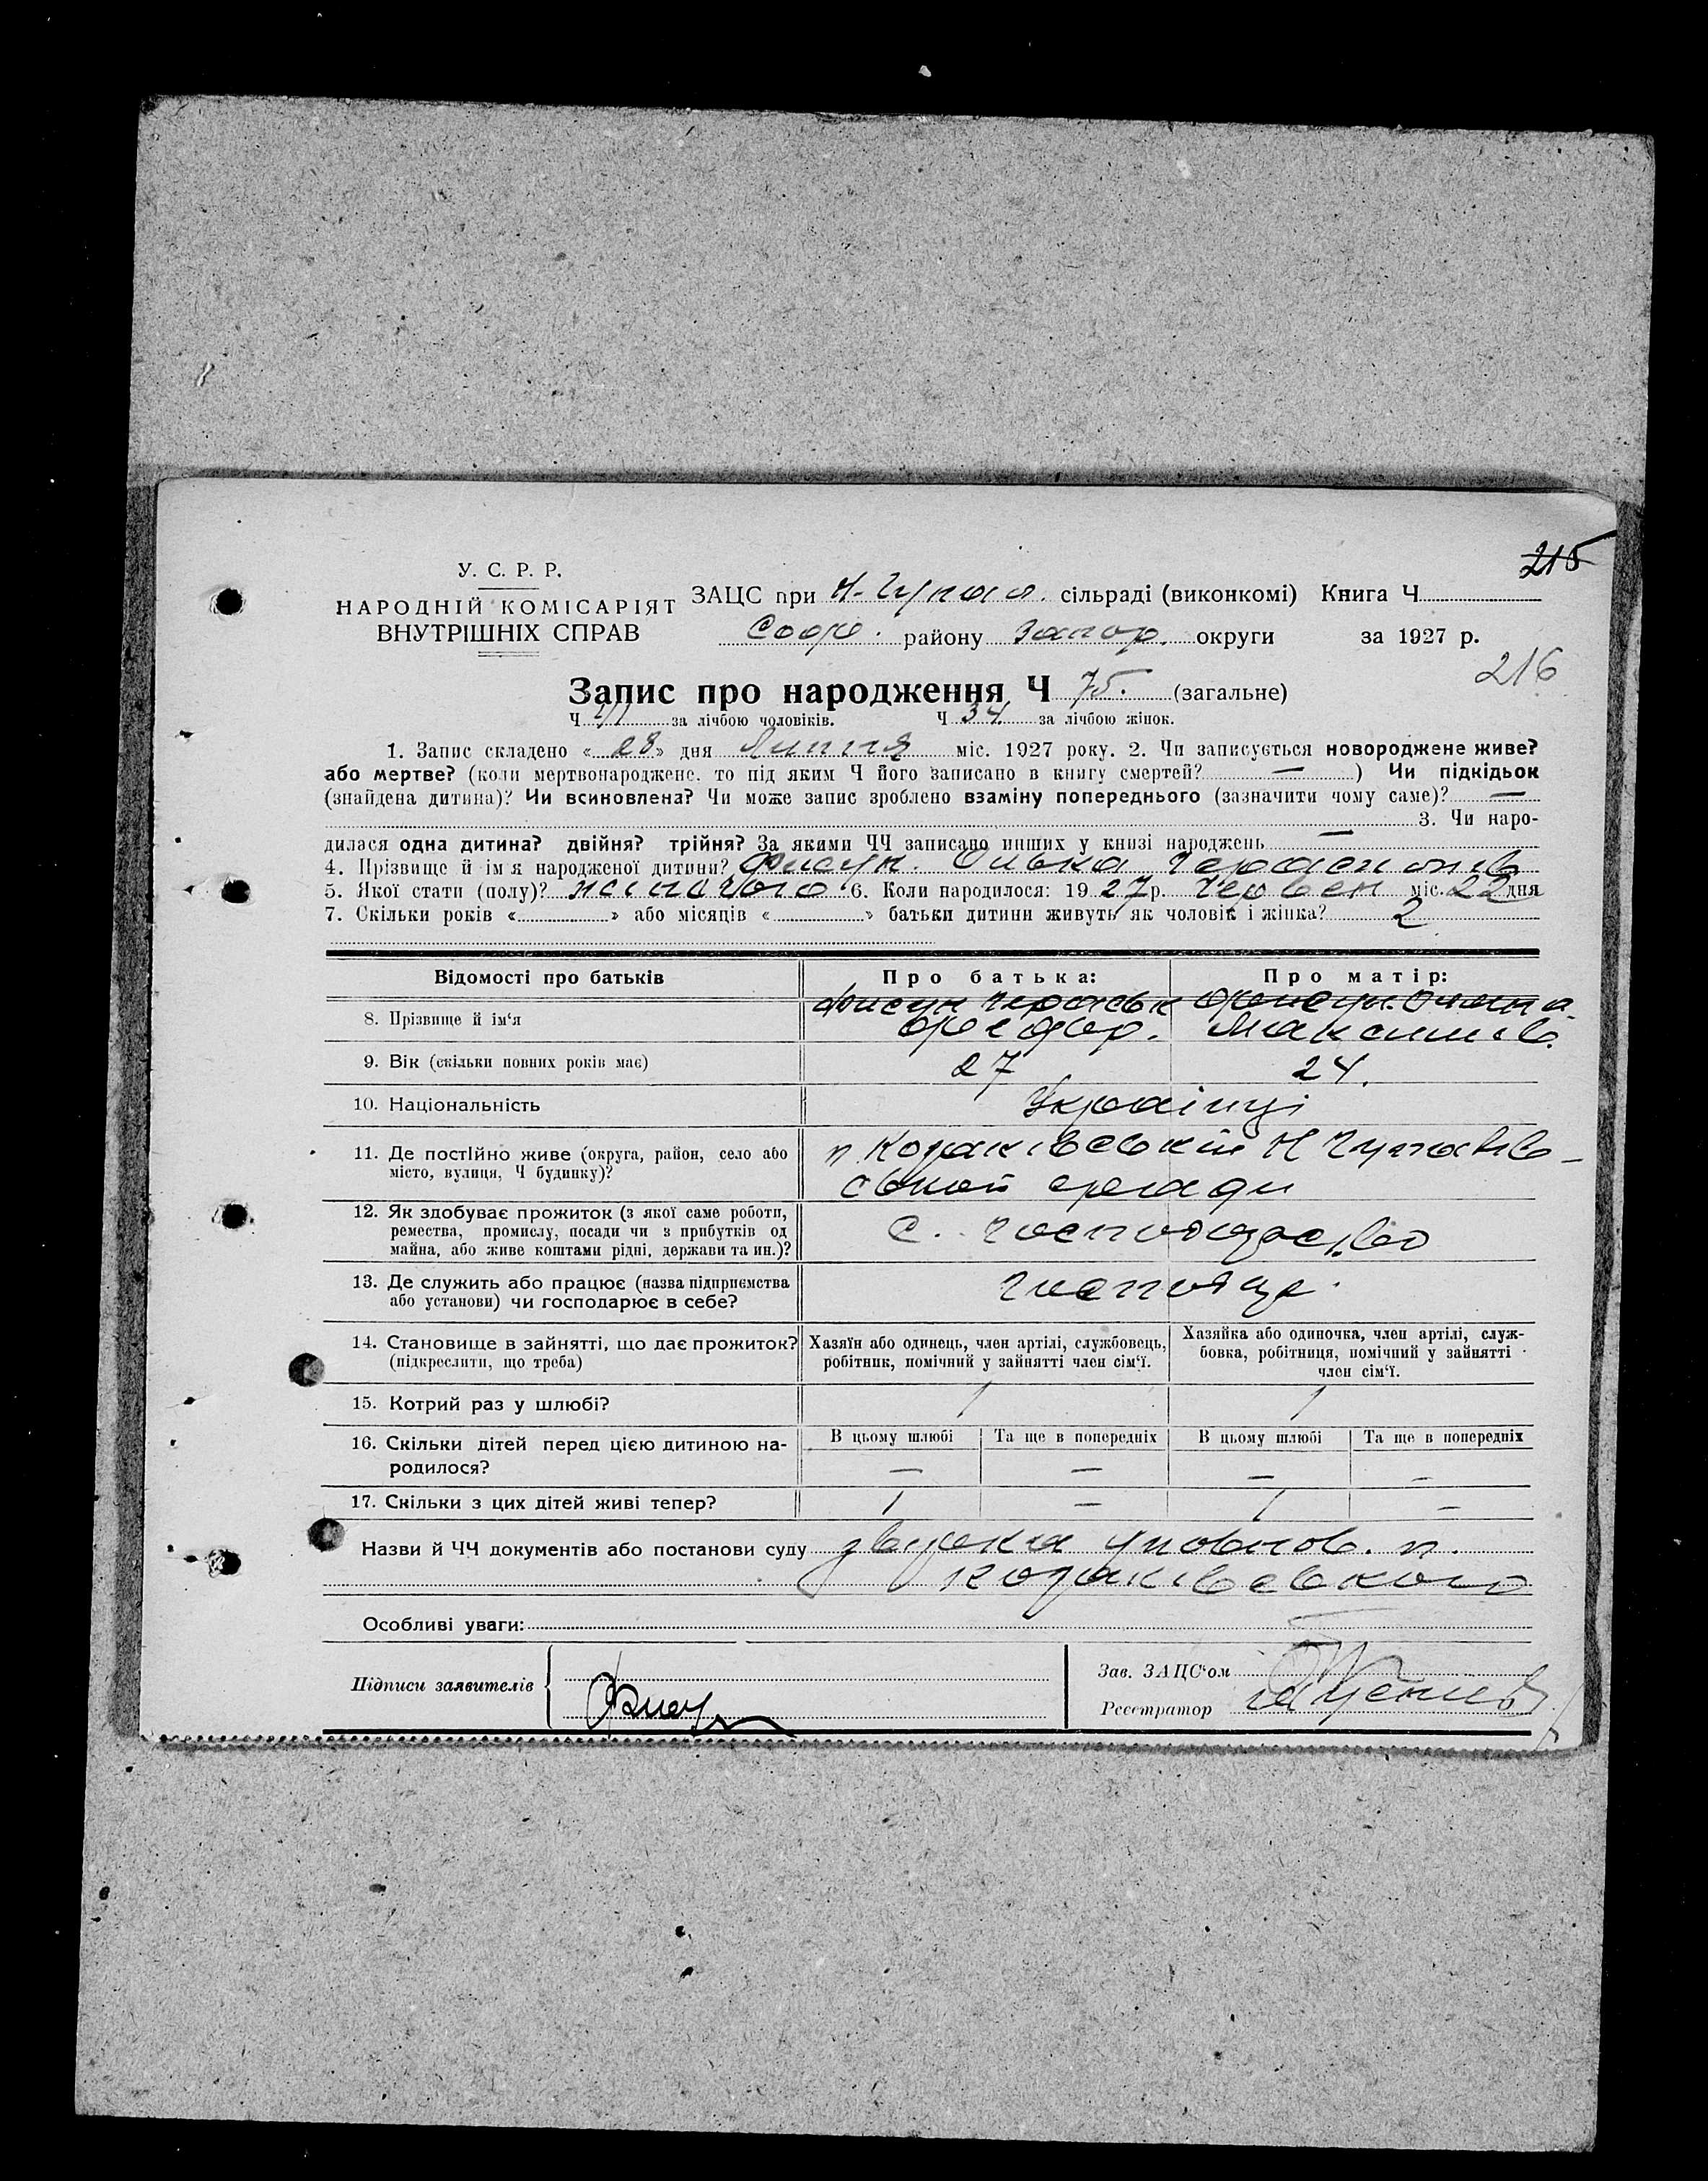 215
У. С. Р. Р.
НАРОДНІЙ КОМІСАРІЯТ
ВНУТРІШНІХ СПРАВ
ЗАЦС при сільраді (виконкомі) Книга Ч
Соф. району Запор. округи за 1927 р.
216
Запис про народження Ч 75. (загальне)
Ч 41 за лічбою чоловіків. Ч 34 за лічбою жінок.
1. Запис складено « 28 » дня Липня міс. 1927 року. 2. Чи записується новороджене живе?
або мертве? (коли мертвонароджене. то під яким Ч його записано в книгу смертей? — ) Чи підкідьок
(знайдена дитина)? Чи всиновлена? Чи може запис зроблено взаміну попереднього (зазначити чому саме)? —
3. Чи наро-
дилася одна дитина? двійня? трійня? За якими ЧЧ записано инших у книзі народжень —
4. Прізвище й ім'я народженої дитини? Фисун.
5. Якої статі (полу)? 6. Коли народилося: 1927 р. Червен міс. 22 дня
7. Скільки років « » або місяців « » батьки дитини живуть як чоловік і жінка? 2
Відомості про батьків Про батька: Про матір:
8. Прізвище й ім'я Фисун Фисун
Максимів.
9. Вік (скільки повних років має) 27 24.
10. Національність Українці
11. Де постійно живе (округа, район, село або
місто, вулиця, Ч будинку)?
12. Як здобуває прожиток (з якої саме роботи,
ремества, промислу, посади чи з прибутків од
майна, або живе коштами рідні, держави та ин.)?
С. господарство
13. Де служить або працює (назва підприємства
або установи) чи господарює в себе?
14. Становище в зайнятті, що дає прожиток?
(підкреслити, що треба)
Хазяїн або одинець, член артілі, службовець,
робітник, помічний у зайнятті член сім'ї.
Хазяйка або одиночка, член артілі, служ-
бовка, робітниця, помічний у зайнятті
член сім'ї.
15. Котрий раз у шлюбі? 1 1
16. Скільки дітей перед цією дитиною на-
родилося?
В цьому шлюбі Та ще в попередніх В цьому шлюбі Та ще в попередніх
— — — —
17. Скільки з цих дітей живі тепер? 1 — 1 —
Назви й ЧЧ документів або постанови суду
Особливі уваги:
Підписи заявителів Фисун
Зав. ЗАЦС'ом
Реєстратор